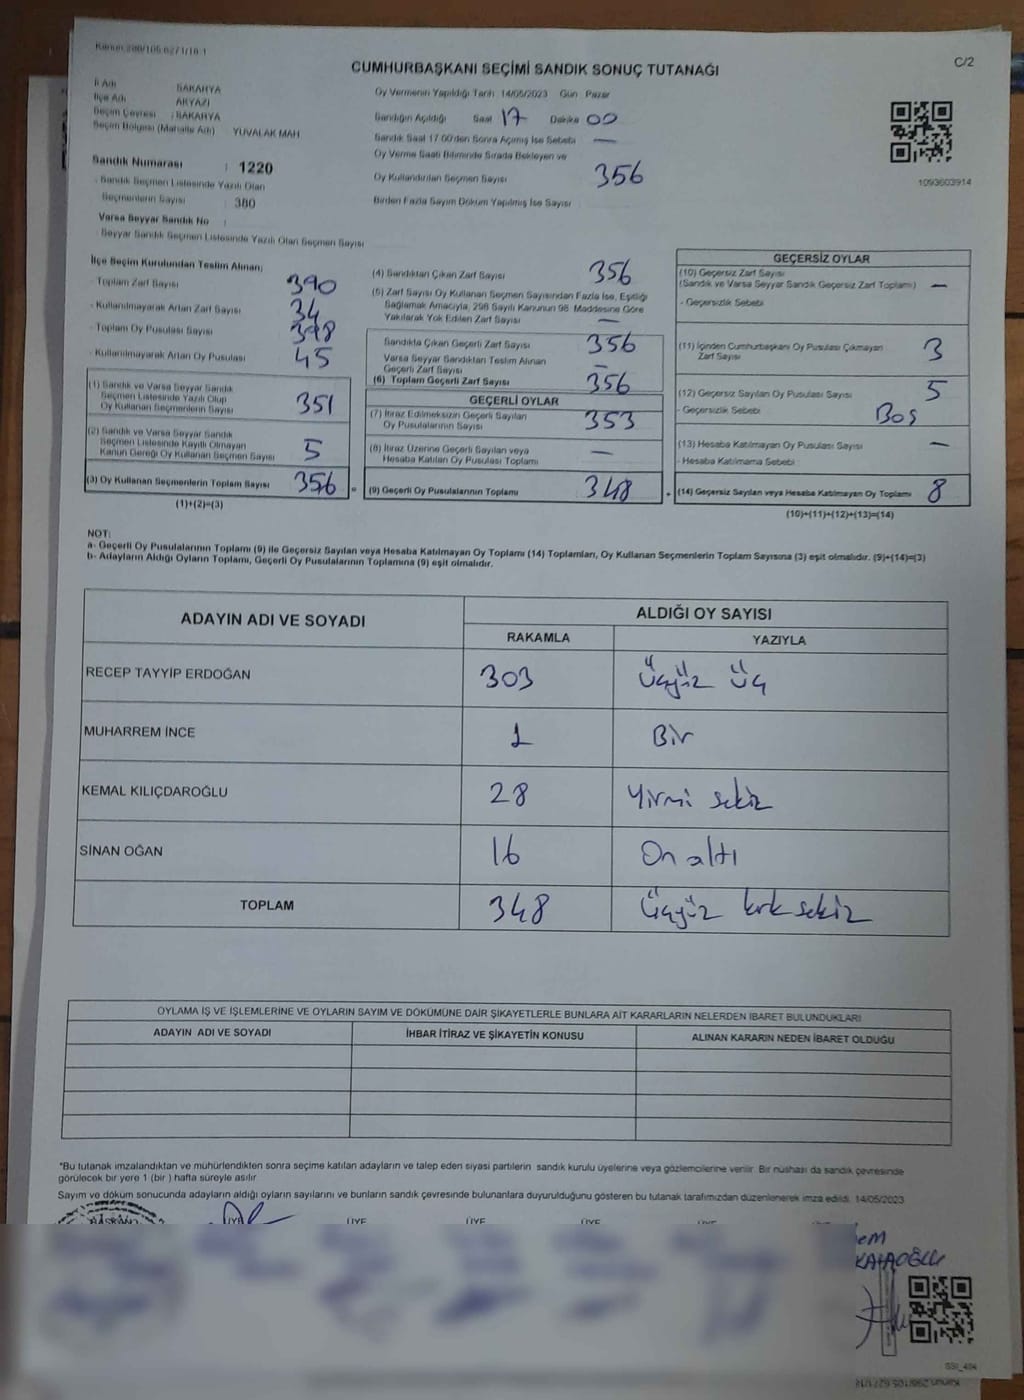 C/2
CUMHURBAŞKANI SEÇİMİ SANDIK SONUÇ TUTANAĞI
İl Adı : SAKARYA
İlçe Adı : AKYAZI
Seçim Çevresi : SAKARYA
Seçim Bölgesi (Mahalle Adı) : YUVALAK MAH.
Sandık Numarası : 1220
- Sandık Seçmen Listesinde Yazılı Olan
Seçmenlerin Sayısı : 380
Varsa Seyyar Sandık No :
- Seyyar Sandık Seçmen Listesinde Yazılı Olan Seçmen Sayısı
Oy Vermenin Yapıldığı Tarih : 14/05/2023 Gün : Pazar
Sandığın Açıldığı Saat 17 Dakika 00
Sandık Saat 17.00'den Sonra Açılmış İse Sebebi —
Oy Verme Saati Bitiminde Sırada Bekleyen ve
Oy Kullandırılan Seçmen Sayısı 356
Birden Fazla Sayım Döküm Yapılmış İse Sayısı
1093603914
İlçe Seçim Kurulundan Teslim Alınan;
- Toplam Zarf Sayısı 390
- Kullanılmayarak Artan Zarf Sayısı 34
- Toplam Oy Pusulası Sayısı 398
- Kullanılmayarak Artan Oy Pusulası 45
(1) Sandık ve Varsa Seyyar Sandık
Seçmen Listesinde Yazılı Olup
Oy Kullanan Seçmenlerin Sayısı 351
(2) Sandık ve Varsa Seyyar Sandık
Seçmen Listesinde Kayıtlı Olmayan
Kanun Gereği Oy Kullanan Seçmen Sayısı 5
(3) Oy Kullanan Seçmenlerin Toplam Sayısı 356 =
(1)+(2)=(3)
(4) Sandıktan Çıkan Zarf Sayısı 356
(5) Zarf Sayısı Oy Kullanan Seçmen Sayısından Fazla İse, Eşitliği
Sağlamak Amacıyla, 298 Sayılı Kanunun 98. Maddesine Göre
Yakılarak Yok Edilen Zarf Sayısı —
Sandıkta Çıkan Geçerli Zarf Sayısı 356
Varsa Seyyar Sandıktan Teslim Alınan
Geçerli Zarf Sayısı —
(6) Toplam Geçerli Zarf Sayısı 356
GEÇERLİ OYLAR
(7) İtiraz Edilmeksizin Geçerli Sayılan
Oy Pusulalarının Sayısı 353
(8) İtiraz Üzerine Geçerli Sayılan veya
Hesaba Katılan Oy Pusulası Toplamı —
(9) Geçerli Oy Pusulalarının Toplamı 348 +
GEÇERSİZ OYLAR
(10) Geçersiz Zarf Sayısı
(Sandık ve Varsa Seyyar Sandık Geçersiz Zarf Toplamı) —
- Geçersizlik Sebebi
(11) İçinden Cumhurbaşkanı Oy Pusulası Çıkmayan
Zarf Sayısı 3
(12) Geçersiz Sayılan Oy Pusulası Sayısı 5
- Geçersizlik Sebebi Boş
(13) Hesaba Katılmayan Oy Pusulası Sayısı —
- Hesaba Katılmama Sebebi
(14) Geçersiz Sayılan veya Hesaba Katılmayan Oy Toplamı 8
(10)+(11)+(12)+(13)=(14)
NOT:
a- Geçerli Oy Pusulalarının Toplamı (9) ile Geçersiz Sayılan veya Hesaba Katılmayan Oy Toplamı (14) Toplamları, Oy Kullanan Seçmenlerin Toplam Sayısına (3) eşit olmalıdır. (9)+(14)=(3)
b- Adayların Aldığı Oyların Toplamı, Geçerli Oy Pusulalarının Toplamına (9) eşit olmalıdır.
ADAYIN ADI VE SOYADI
ALDIĞI OY SAYISI
RAKAMLA YAZIYLA
RECEP TAYYİP ERDOĞAN 303 Üçyüz üç
MUHARREM İNCE 1 Bir
KEMAL KILIÇDAROĞLU 28 Yirmi sekiz
SİNAN OĞAN 16 On altı
TOPLAM 348 Üçyüz kırk sekiz
OYLAMA İŞ VE İŞLEMLERİNE VE OYLARIN SAYIM VE DÖKÜMÜNE DAİR ŞİKAYETLERLE BUNLARA AİT KARARLARIN NELERDEN İBARET BULUNDUKLARI
ADAYIN ADI VE SOYADI İHBAR İTİRAZ VE ŞİKAYETİN KONUSU ALINAN KARARIN NEDEN İBARET OLDUĞU
*Bu tutanak imzalandıktan ve mühürlendikten sonra seçime katılan adayların ve talep eden siyasi partilerin sandık kurulu üyelerine veya gözlemcilerine verilir. Bir nüshası da sandık çevresinde
görülecek bir yere 1 (bir ) hafta süreyle asılır.
Sayım ve döküm sonucunda adayların aldığı oyların sayılarını ve bunların sandık çevresinde bulunanlara duyurulduğunu gösteren bu tutanak tarafımızdan düzenlenerek imza edildi. 14/05/2023
BAŞKAN ÜYE ÜYE ÜYE ÜYE ÜYE